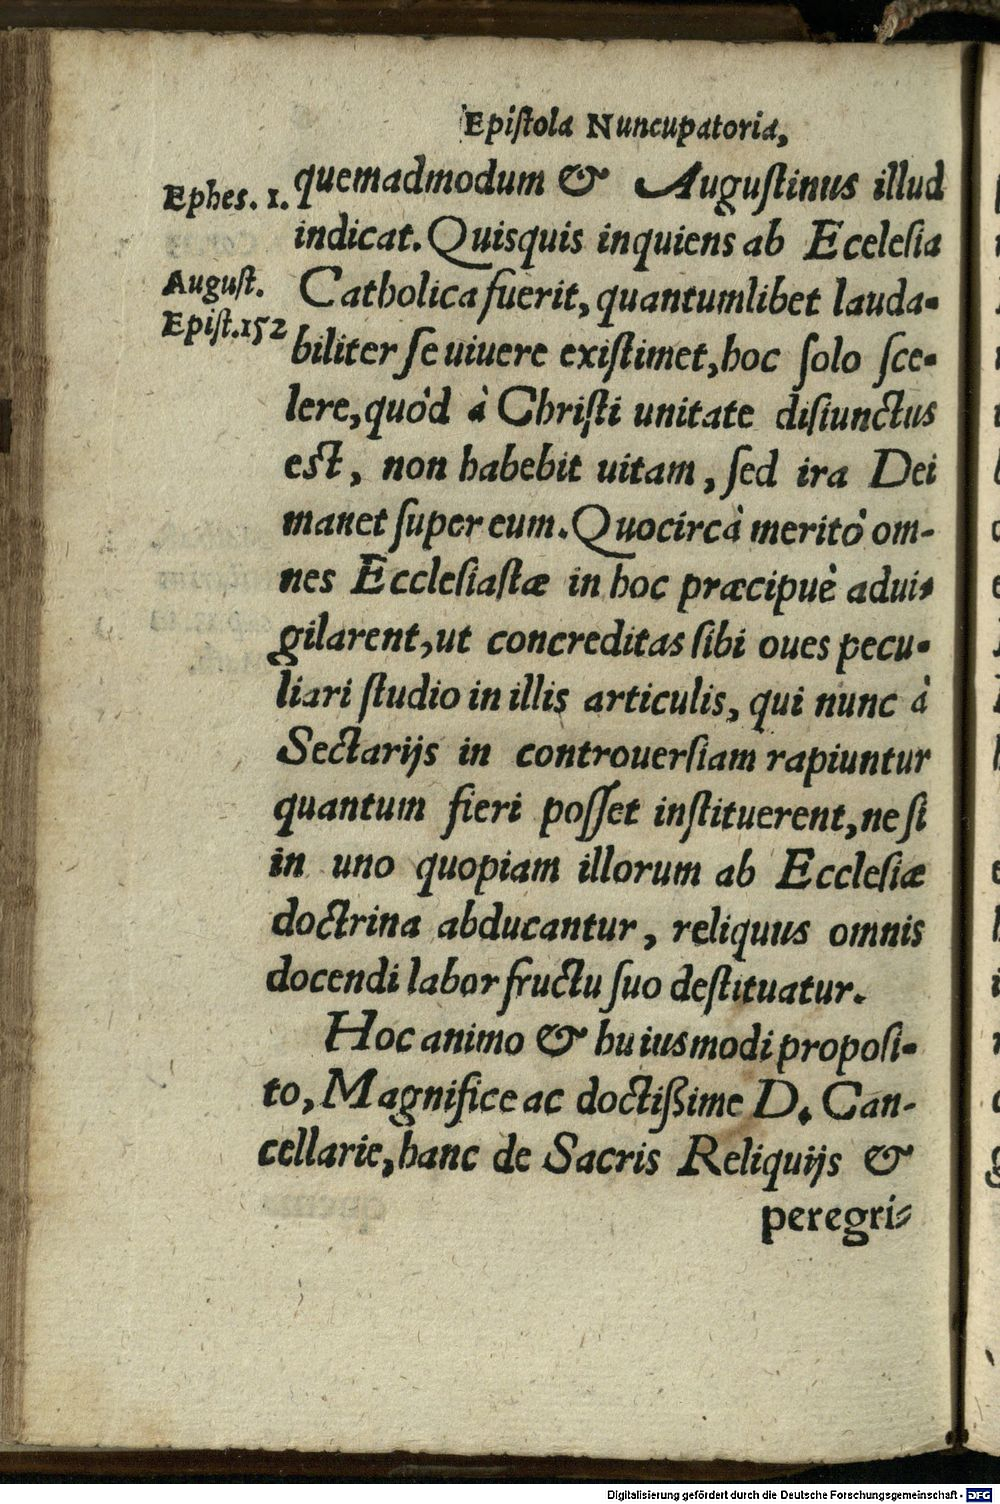 Epistola Nuncupatoria,
quemadmodum & Augustinus illud
Ephes. 1.
indicat. Quisquis inquiens ab Ecelesia
August.
Catholica fuerit, quantumlibet lauda-
Epist. 152
biliter se uiuere existimet, hoc solo sce-
lere, quòd à Christi unitate disiunctus
est, non habebit uitam, sed ira Dei
manet super eum. Quocircà meritò om-
nes Ecclesiastæ in hoc præcipuè adui-
gilarent, ut concreditas sibi oues pecu-
liari studio in illis articulis, qui nunc à
Sectarijs in controuersiam rapiuntur
quantum fieri posset instituerent, ne si
in uno quopiam illorum ab Ecclesiæ
doctrina abducantur, reliquus omnis
docendi labor fructu suo destituatur.
Hoc animo & huiusmodi proposi-
to, Magnifice ac doctißime D. Can-
cellarie, hanc de Sacris Reliquijs &
peregri-
Digitalisierung gefördert durch die Deutsche Forschungsgemeinschaft - DFG